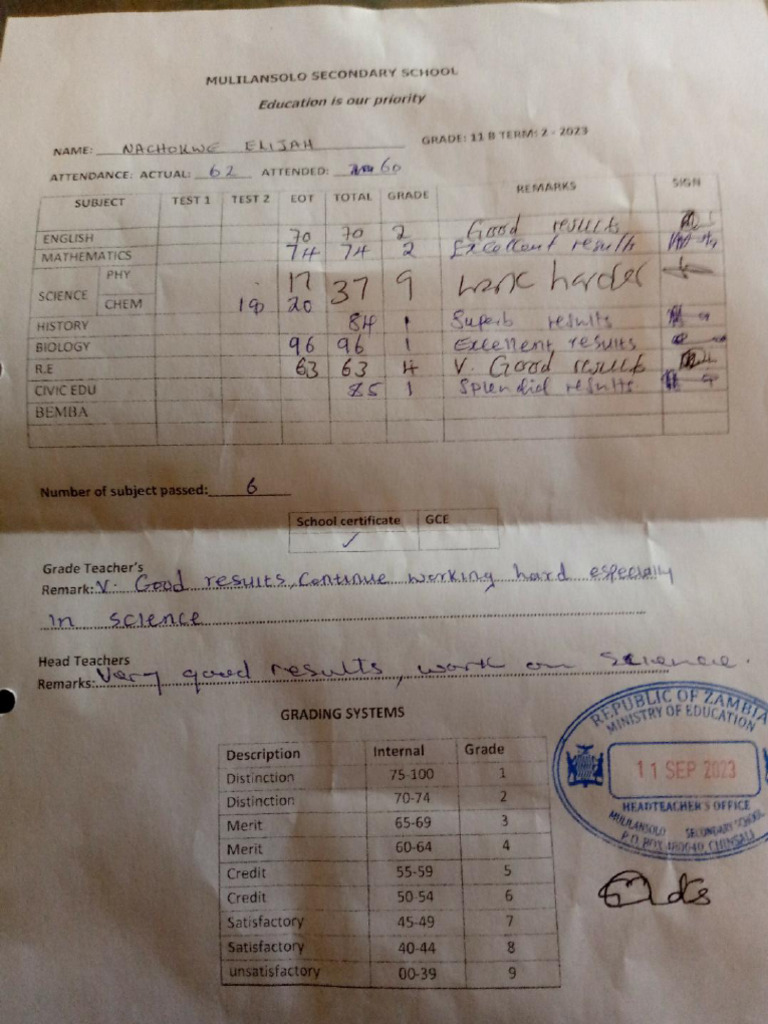 MULILANSOLO SECONDARY SCHOOL
Education is our priority
NAME: NACHOKWE ELIJAH GRADE: 11 B TERM: 2 - 2023
ATTENDANCE: ACTUAL: 62 ATTENDED: 60
SUBJECT TEST 1 TEST 2 EOT TOTAL GRADE REMARKS SIGN
ENGLISH 70 70 2 Good results
MATHEMATICS 74 74 2 Excellent results
SCIENCE PHY 17 37 9 work harder
CHEM 18 20
HISTORY 84 1 Superb results
BIOLOGY 96 96 1 Excellent results
R.E 63 63 4 V. Good results
CIVIC EDU 85 1 Splendid results
BEMBA
Number of subject passed: 6
School certificate GCE
✓
Grade Teacher's
Remark: V. Good results, Continue working hard especially
in science
Head Teachers
Remarks: Very good results, work on science.
GRADING SYSTEMS
Description Internal Grade
Distinction 75-100 1
Distinction 70-74 2
Merit 65-69 3
Merit 60-64 4
Credit 55-59 5
Credit 50-54 6
Satisfactory 45-49 7
Satisfactory 40-44 8
unsatisfactory 00-39 9
REPUBLIC OF ZAMBIA
MINISTRY OF EDUCATION
11 SEP 2023
HEADTEACHER'S OFFICE
MULILANSOLO SECONDARY SCHOOL
P.O. BOX 480040, CHINSALI